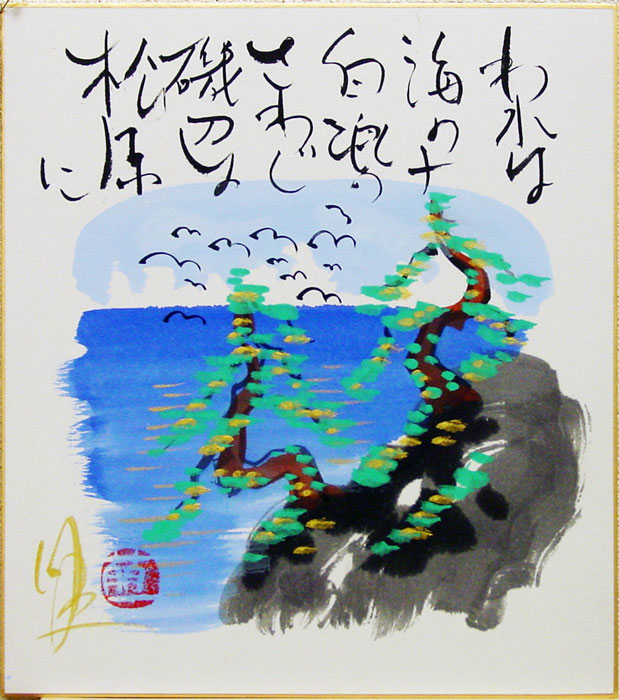 われは
海の子
白浪の
さわぐ
磯辺の
松原
に